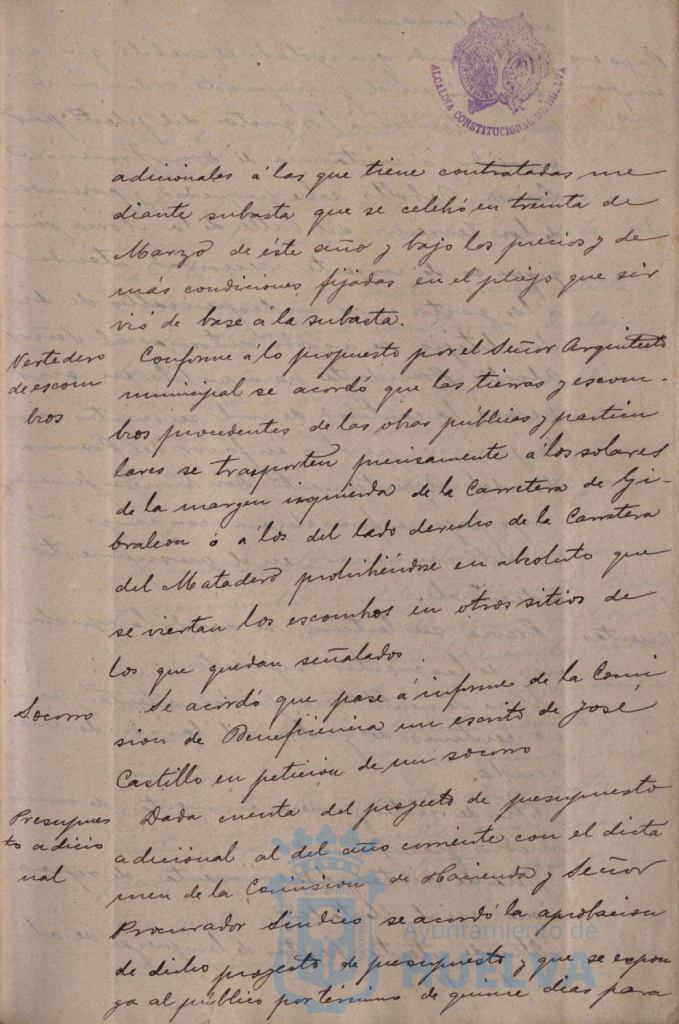 ALCALDIA CONSTITUCIONAL DE HUELVA
adicionales á las que tiene contratadas me
diante subasta que se celebró en treinta de
Marzo de éste año y bajo los precios y de
más condiciones fijadas en el pliejo que sir
vió de base á la subasta.
Vertedero
de escom
bros
Conforme á lo propuesto por el Señor Arquitecto
municipal se acordó que las tierras y escom-
bros procedentes de las obras públicas y particu
lares se trasporten precisamente á los solares
de la margen izquierda de la Carretera de Gi-
braleon ó á los del lado derecho de la Carretera
del Matadero prohibiéndose en absoluto que
se viertan los escombros in otros sitios de
los que quedan señalados.
Socorro
Se acordó que pase á informe de la Comi
sion de Beneficencia un escrito de José
Castillo en peticion de un socorro
Presupues
to adicio
nal
Dada cuenta del proyecto de presupuesto
adicional al del año corriente con el dicta
men de la Comision de Hacienda y Señor
Procurador Síndico se acordó la aprobacion
de dicho proyecto de presupuesto y que se expon
ga al público por término de quince dias para
Ayuntamiento de
HUELVA